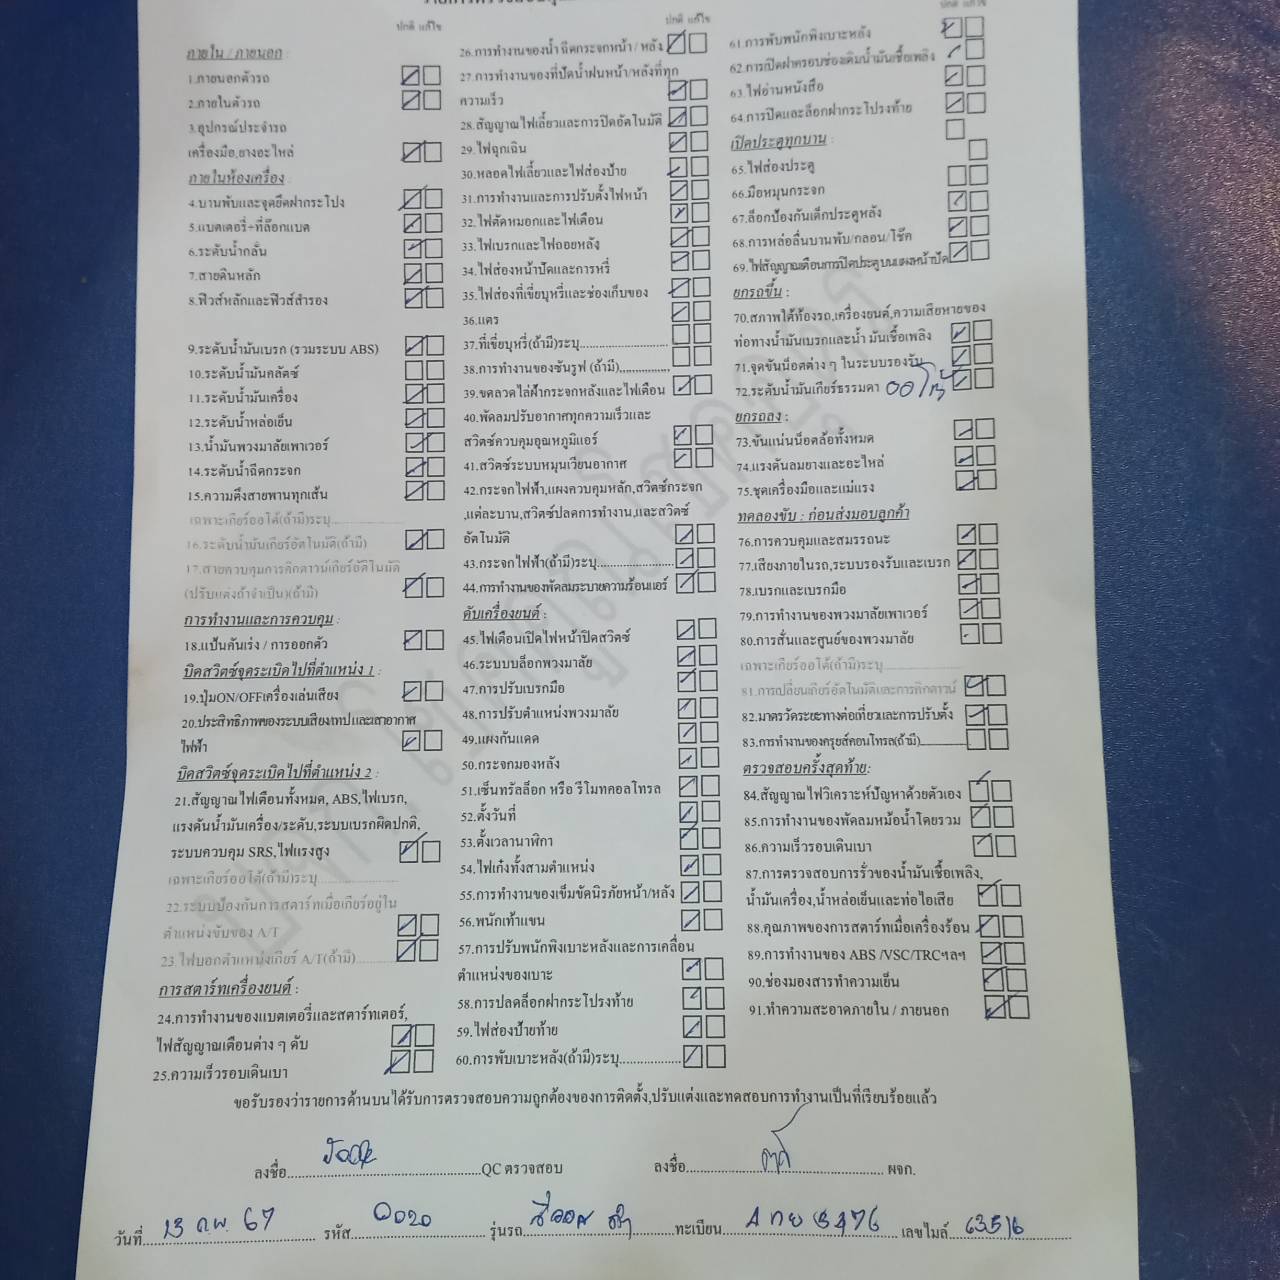 ปกติ แก้ไข
ภายใน / ภายนอก :
1.ภายนอกตัวรถ
2.ภายในตัวรถ
3.อุปกรณ์ประจำรถ
เครื่องมือ,ยางอะไหล่
ภายในห้องเครื่อง :
4.บานพับและจุดยึดฝากระโปรง
5.แบตเตอรี่+ที่ล๊อกแบต
6.ระดับน้ำกลั่น
7.สายดินหลัก
8.ฟิวส์หลักและฟิวส์สำรอง
9.ระดับน้ำมันเบรก (รวมระบบ ABS)
10.ระดับน้ำมันคลัตช์
11.ระดับน้ำมันเครื่อง
12.ระดับน้ำหล่อเย็น
13.น้ำมันพวงมาลัยเพาเวอร์
14.ระดับน้ำฉีดกระจก
15.ความตึงสายพานทุกเส้น
เฉพาะเกียร์ออโต้(ถ้ามี)ระบุ
16.ระดับน้ำมันเกียร์อัตโนมัติ(ถ้ามี)
17.สายควบคุมการคิกดาวน์เกียร์อัติโนมัติ
(ปรับแต่งถ้าจำเป็น)(ถ้ามี)
การทำงานและการควบคุม :
18.แป้นคันเร่ง / การออกตัว
บิดสวิตซ์จุดระเบิดไปที่ตำแหน่ง 1 :
19.ปุ่มON/OFFเครื่องเล่นเสียง
20.ประสิทธิภาพของระบบเสียงเทปและเสาอากาศ
ไฟฟ้า
บิดสวิตซ์จุดระเบิดไปที่ตำแหน่ง 2 :
21.สัญญาณไฟเตือนทั้งหมด, ABS,ไฟเบรก,
แรงดันน้ำมันเครื่อง/ระดับ,ระบบเบรกผิดปกติ,
ระบบควบคุม SRS,ไฟแรงสูง
เฉพาะเกียร์ออโต้(ถ้ามี)ระบุ
22.ระบบป้องกันการสตาร์ทเมื่อเกียร์อยู่ใน
ตำแหน่งขับของ A/T
23.ไฟบอกตำแหน่งเกียร์ A/T(ถ้ามี)
การสตาร์ทเครื่องยนต์ :
24.การทำงานของแบตเตอรี่และสตาร์ทเตอร์,
ไฟสัญญาณเตือนต่าง ๆ ดับ
25.ความเร็วรอบเดินเบา
ปกติ แก้ไข
26.การทำงานของน้ำ ฉีดกระจกหน้า / หลัง
27.การทำงานของที่ปัดน้ำฝนหน้า/หลังที่ทุก
ความเร็ว
28.สัญญาณไฟเลี้ยวและการปิดอัตโนมัติ
29.ไฟฉุกเฉิน
30.หลอดไฟเลี้ยวและไฟส่องป้าย
31.การทำงานและการปรับตั้งไฟหน้า
32.ไฟตัดหมอกและไฟเตือน
33.ไฟเบรกและไฟถอยหลัง
34.ไฟส่องหน้าปัดและการหรี่
35.ไฟส่องที่เขี่ยบุหรี่และช่องเก็บของ
36.แตร
37.ที่เขี่ยบุหรี่(ถ้ามี)ระบุ
38.การทำงานของซันรูฟ (ถ้ามี)
39.ขดลวดไล่ฝ้ากระจกหลังและไฟเตือน
40.พัดลมปรับอากาศทุกความเร็วและ
สวิตซ์ควบคุมอุณหภูมิแอร์
41.สวิตซ์ระบบหมุนเวียนอากาศ
42.กระจกไฟฟ้า,แผงควบคุมหลัก,สวิตซ์กระจก
,แต่ละบาน,สวิตซ์ปลดการทำงาน,และสวิตซ์
อัตโนมัติ
43.กระจกไฟฟ้า(ถ้ามี)ระบุ
44.การทำงานของพัดลมระบายความร้อนแอร์
ดับเครื่องยนต์ :
45.ไฟเตือนเปิดไฟหน้าปิดสวิตซ์
46.ระบบบล็อกพวงมาลัย
47.การปรับเบรกมือ
48.การปรับตำแหน่งพวงมาลัย
49.แผงกันแดด
50.กระจกมองหลัง
51.เซ็นทรัลล็อก หรือ รีโมทคอลโทรล
52.ตั้งวันที่
53.ตั้งเวลานาฬิกา
54.ไฟเก๋งทั้งสามตำแหน่ง
55.การทำงานของเข็มขัดนิรภัยหน้า/หลัง
56.พนักเท้าแขน
57.การปรับพนักพิงเบาะหลังและการเคลื่อน
ตำแหน่งของเบาะ
58.การปลดล็อกฝากระโปรงท้าย
59.ไฟส่องป้ายท้าย
60.การพับเบาะหลัง(ถ้ามี)ระบุ
ปกติ แก้ไข
61.การพับพนักพิงเบาะหลัง
62.การเปิดฝาครอบช่องเติมน้ำมันเชื้อเพลิง
63.ไฟอ่านหนังสือ
64.การปิดและล็อกฝากระโปรงท้าย
เปิดประตูทุกบาน :
65.ไฟส่องประตู
66.มือหมุนกระจก
67.ล็อกป้องกันเด็กประตูหลัง
68.การหล่อลื่นบานพับ/กลอน/โช๊ค
69.ไฟสัญญาณเตือนการปิดประตูบนแผงหน้าปัด
ยกรถขึ้น :
70.สภาพใต้ท้องรถ,เครื่องยนต์,ความเสียหายของ
ท่อทางน้ำมันเบรกและน้ำ มันเชื้อเพลิง
71.จุดขันน็อตต่าง ๆ ในระบบรองรับ
72.ระดับน้ำมันเกียร์ธรรมดา ออโต้
ยกรถลง :
73.ขันแน่นน็อตล้อทั้งหมด
74.แรงดันลมยางและอะไหล่
75.ชุดเครื่องมือและแม่แรง
ทดลองขับ : ก่อนส่งมอบลูกค้า
76.การควบคุมและสมรรถนะ
77.เสียงภายในรถ,ระบบรองรับและเบรก
78.เบรกและเบรกมือ
79.การทำงานของพวงมาลัยเพาเวอร์
80.การสั่นและศูนย์ของพวงมาลัย
เฉพาะเกียร์ออโต้(ถ้ามี)ระบุ
81.การเปลี่ยนเกียร์อัตโนมัติและการคิกดาวน์
82.มาตรวัดระยะทางต่อเที่ยวและการปรับตั้ง
83.การทำงานของครุยส์คอนโทรล(ถ้ามี)
ตรวจสอบครั้งสุดท้าย:
84.สัญญาณไฟวิเคราะห์ปัญหาด้วยตัวเอง
85.การทำงานของพัดลมหม้อน้ำโดยรวม
86.ความเร็วรอบเดินเบา
87.การตรวจสอบการรั่วของน้ำมันเชื้อเพลิง,
น้ำมันเครื่อง,น้ำหล่อเย็นและท่อไอเสีย
88.คุณภาพของการสตาร์ทเมื่อเครื่องร้อน
89.การทำงานของ ABS /VSC/TRCฯลฯ
90.ช่องมองสารทำความเย็น
91.ทำความสะอาดภายใน / ภายนอก
ขอรับรองว่ารายการด้านบนได้รับการตรวจสอบความถูกต้องของการติดตั้ง,ปรับแต่งและทดสอบการทำงานเป็นที่เรียบร้อยแล้ว
ลงชื่อ QC ตรวจสอบ ลงชื่อ ผจก.
วันที่ 13 กพ. 67 รหัส 0020 รุ่นรถ ทะเบียน เลขไมล์ 63516